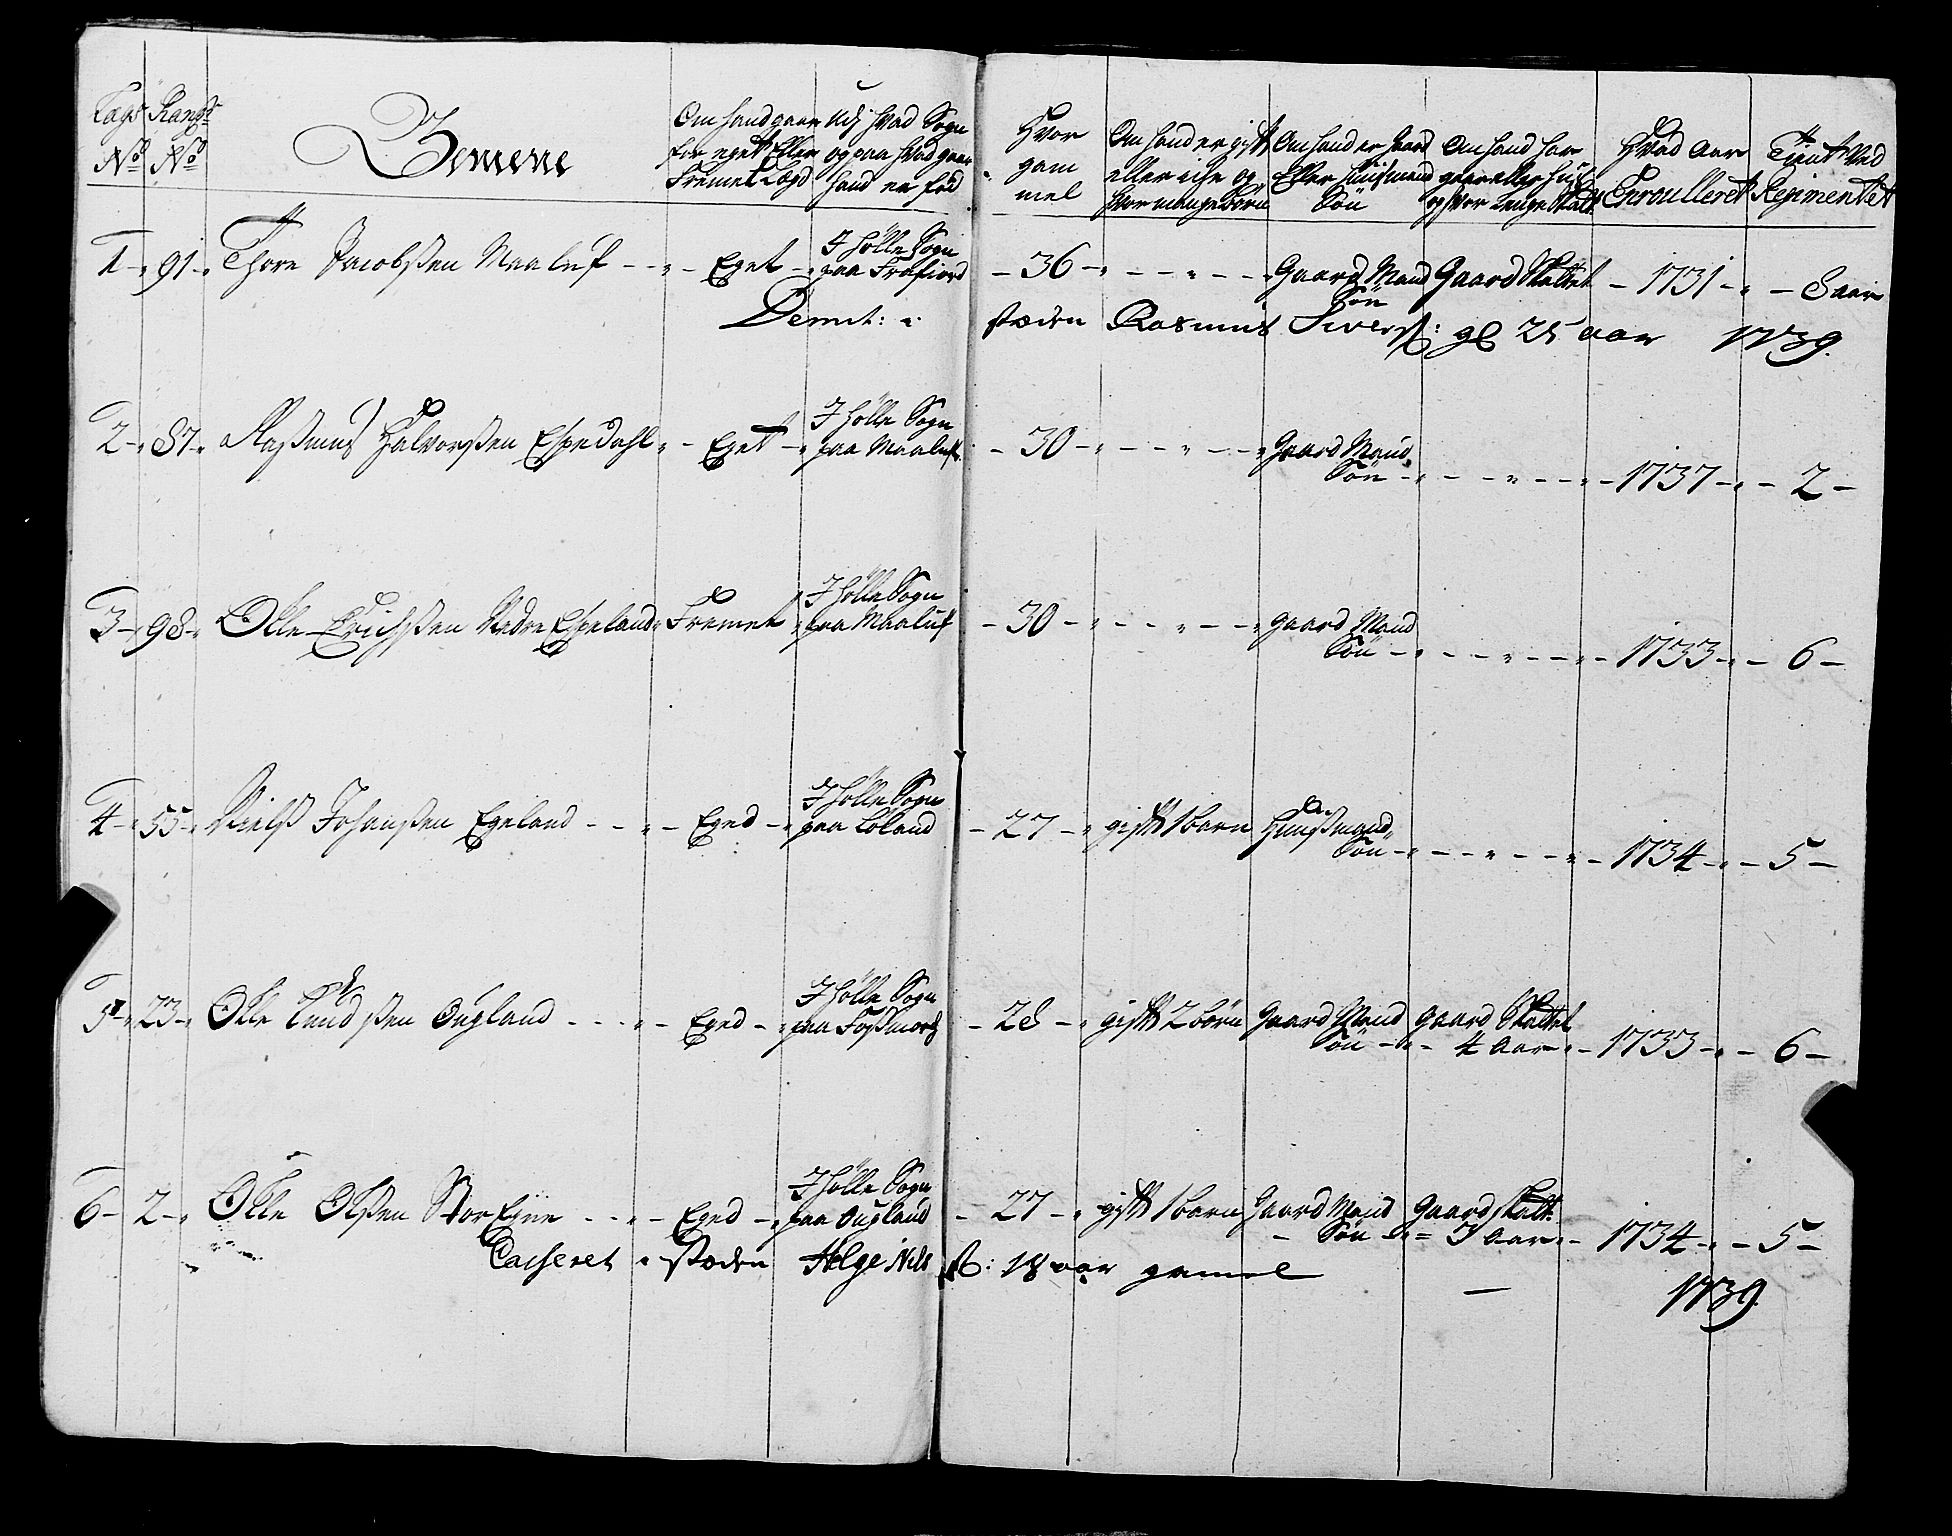 Lags Rangs
No No
Gemene
Om hand gaar
for eget Eller
Fremet Lægd
Udj hvad Sogn
og paa hvad gaar
hand er fød
Hvor
gam
mel
Om hand er gift
eller iche og
hvor mange børn
Om hand er Gaard
Eller Huusmand
Søn
Om hand har
gaar eller huus
og hvor Lenge
Hvad Aar
Enroulleret
Tient ved
Regimentet
1 91 Thore Jacobsen Maaluf Eget I Hølle Sogn paa Frafiord 36 Gaard Mand Søn Gaard Skattet 1731 8 aar
Demt: staden Rasmus Siversz: gl 25 aar 1739.
2 87 Rasmus Halvorsen Espedahl Eget I Hølle Sogn paa Maaluf 30 Gaard Mand Søn 1737 2
3 98 Olle Erichsen Nedre Espeland Fremet I Hølle Sogn paa Maaluf 30 gaard Mand Søn 1733 6
4 55 Nielss Johansen Egeland Eged I Hølle Sogn paa Løland 27 gift 1 barn Huusmand Søn 1734 5
5 23 Olle Knudssen Ougland Eged I Hølle Sogn paa Fossmork 28 gift 2 børn Gaard Mand Søn gaard Skattet 4 Aar 1733 6
6 2 Olle Olssen Stor Egne Eged I Hølle Sogn paa Ougland 27 gift 1 barn Gaard Mand Søn Gaard skatt 3 Aar 1734 5
Casseret staden Helge Nils s: 18 aar gamel 1739